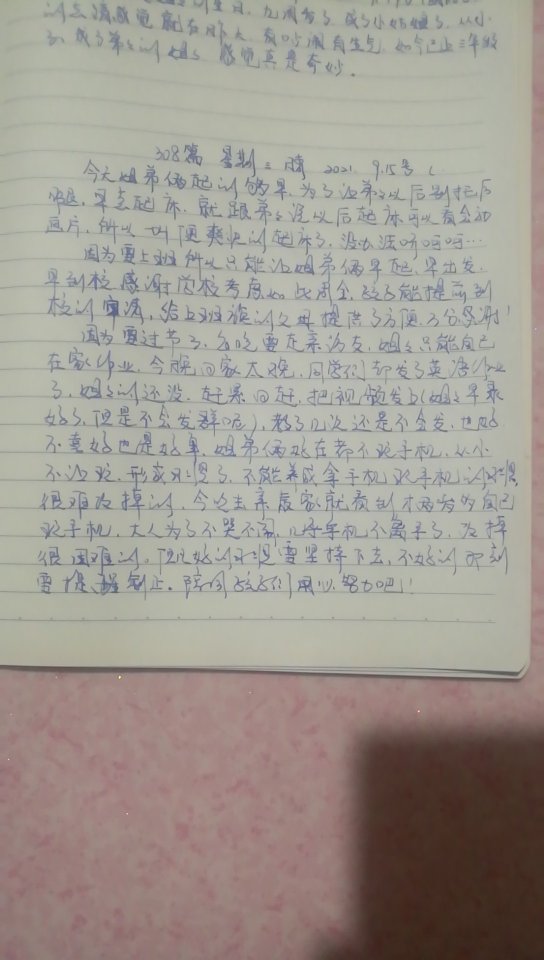 成了小姑姐了，从小
感觉真是奇妙。
308篇 星期三 晴 2021. 9.15号
今天姐弟俩起的够早，为了让弟弟以后别拖后
腿，早点起床，就跟弟弟说以后起床可以看会动
画片，所以一叫便爽快的起床了，没办法呵呵呵…
因为要上班所以只能让姐弟俩早起，早出发，
早到校，感谢学校考虑如此周全，孩子能提前到
校的，给上班族的父母提供了方便，万分感谢！
因为要过节了，要走亲访友，姐姐只能自己
在家作业，今晚回家太晚，同学们都发了英语作业
了，姐姐的还没，赶紧回赶，把视频发了(姐姐早录
好了，但是不会发群呢)，教了几次还是不会发，也好
不喜好也是好事，姐弟俩好在都不玩手机，从小
不让玩，形成习惯了，不能养成拿手机玩手机的习惯
很难改掉的，今个去亲戚家就看到才两岁的自己
玩手机，大人为了不哭不闹，几乎手机不离手了，改掉
很困难的。但凡好的习惯要坚持下去，不好的即刻
要提醒制止。陪同孩子们用心努力吧！